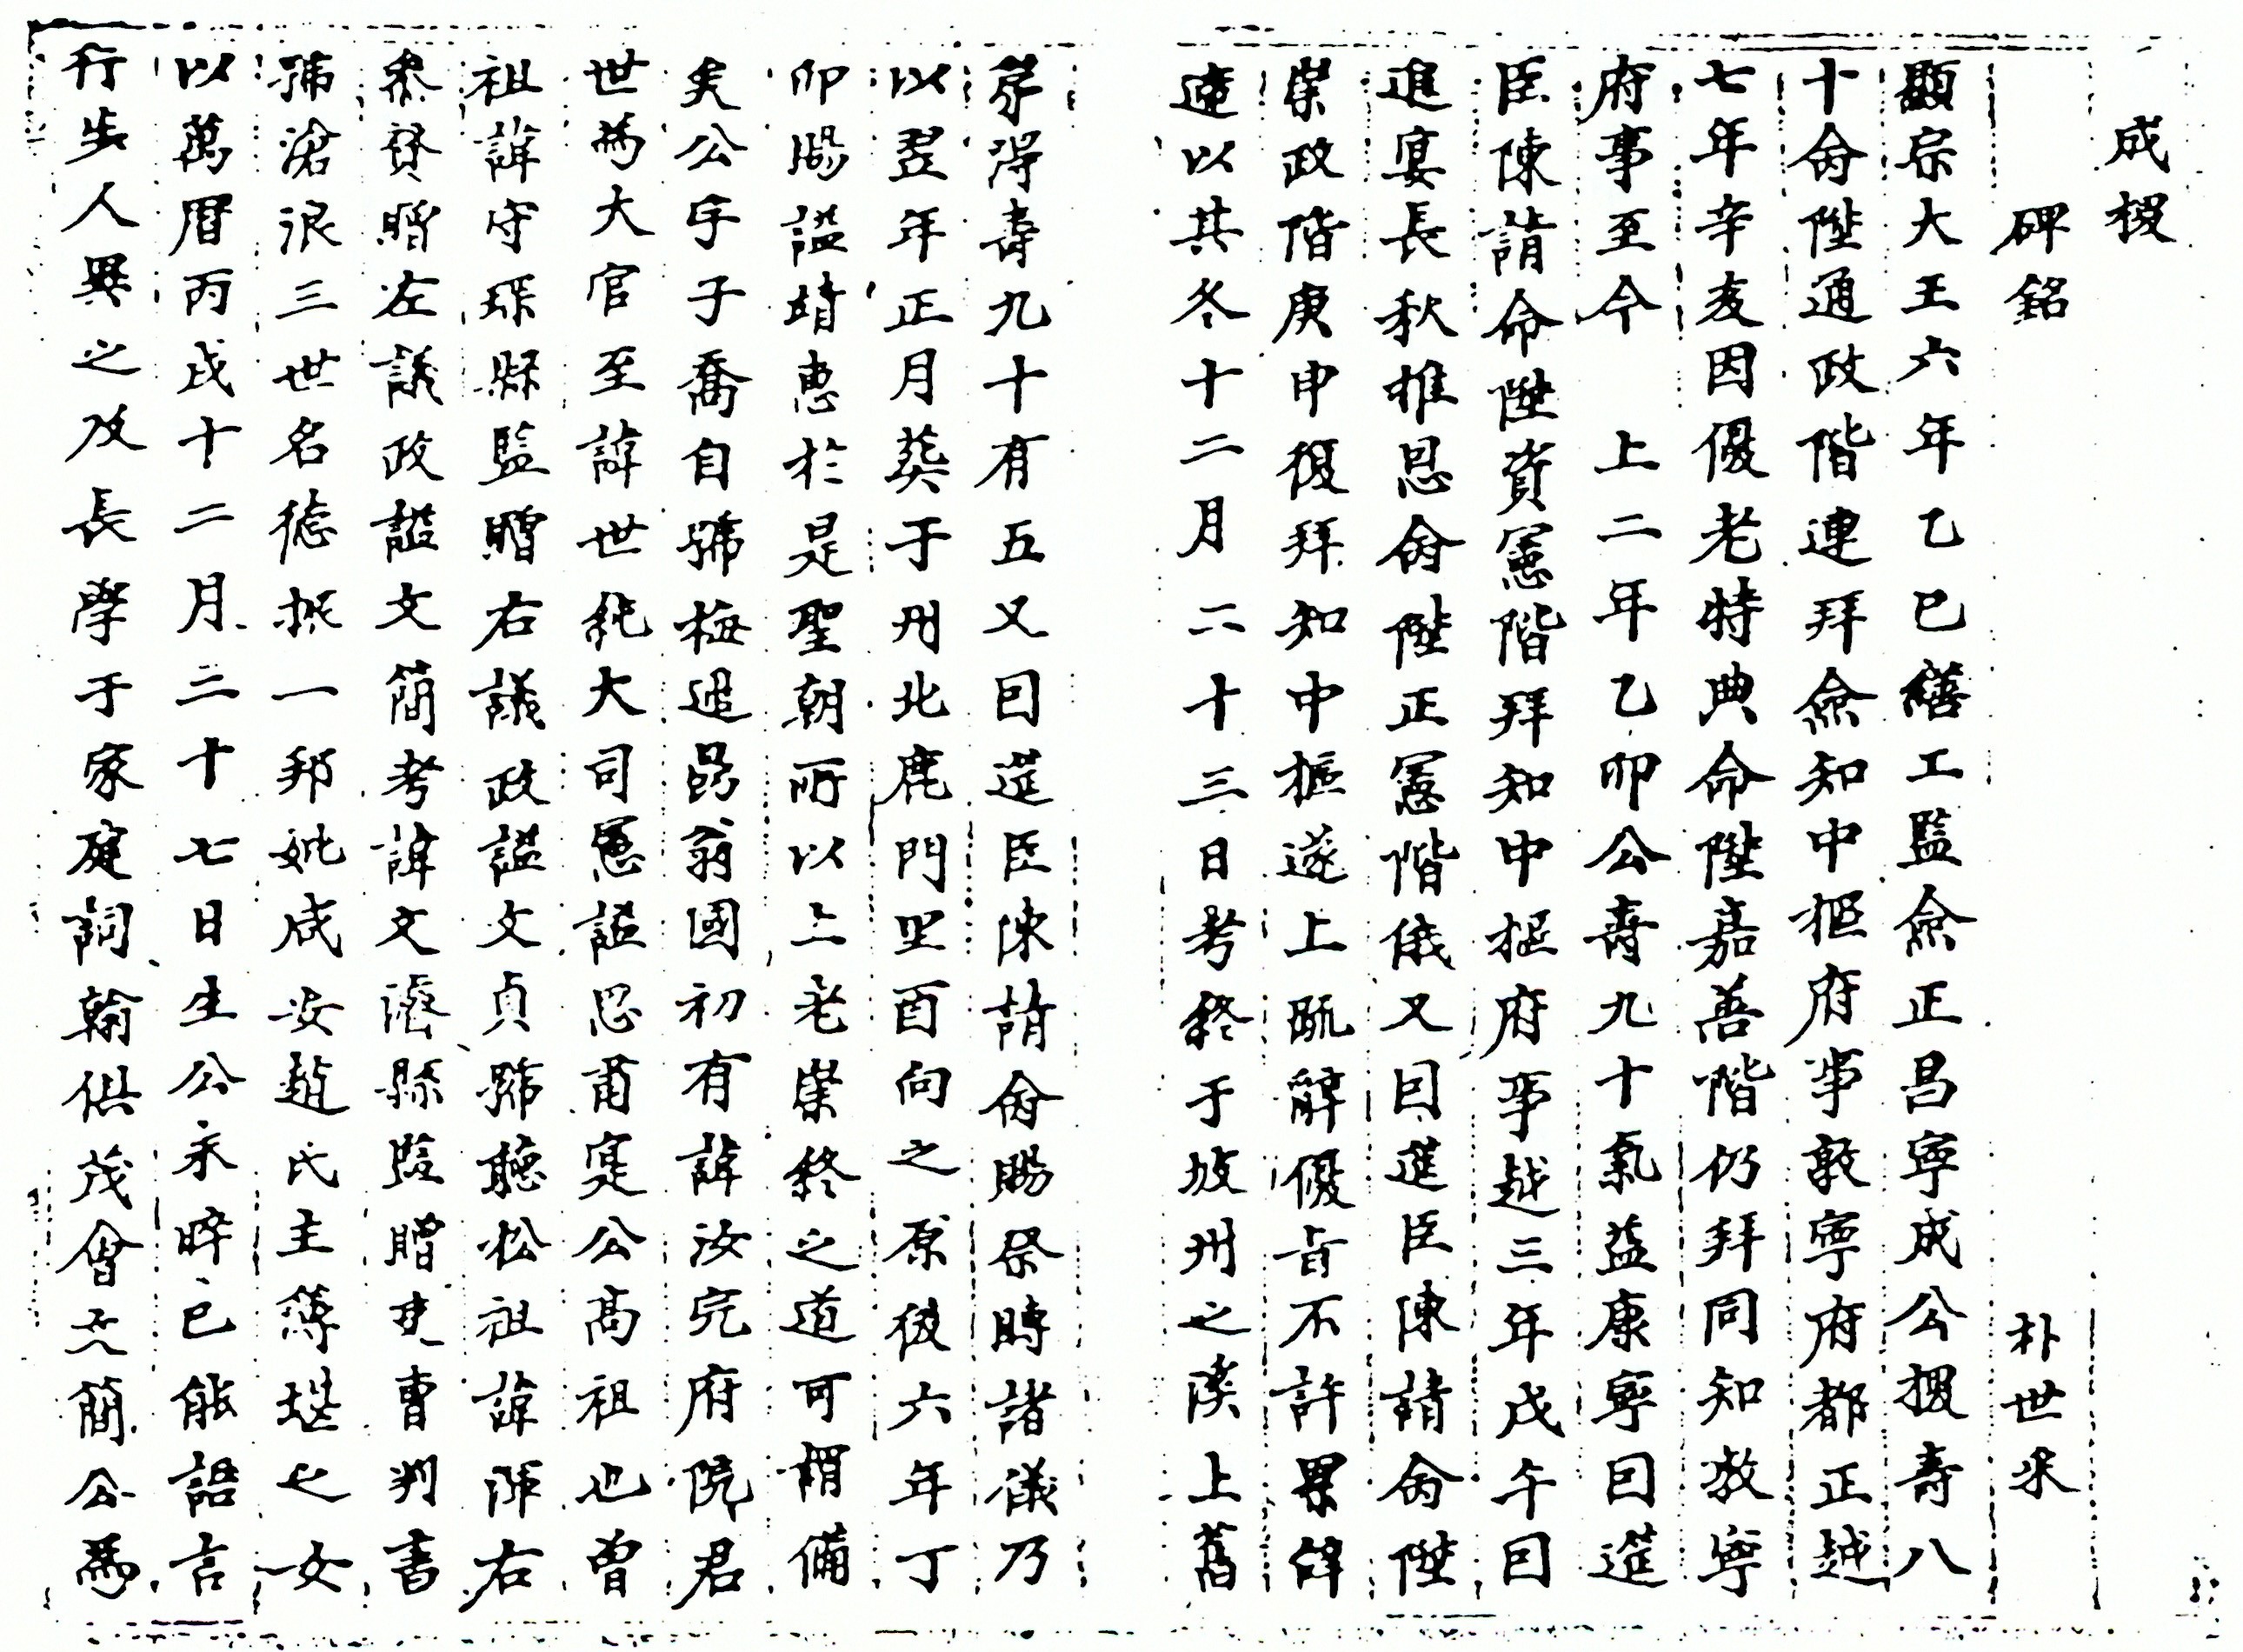 成楥
碑銘
朴世采
顯宗大王六年乙巳繕工監僉正昌寧成公楥壽八
十命陞通政階連拜僉知中樞府事敦寧府都正越
七年辛亥因優老特典命陞嘉善階仍拜同知敦寧
府事至今 上二年乙卯公壽九十氣益康寧因筵
臣陳請命陞資憲階拜知中樞府事越三年戊午因
進宴長秋推恩命陞正憲階俄又因筵臣陳請命陞
崇政階庚申復拜知中樞遂上疏辭優旨不許畢
遠以其冬十二月二十三日考終于坡州之溪上舊
茅得壽九十有五又因筵臣陳請命賜祭時諸儀乃
以翌年正月葬于州北鹿門里酉向之原後六年丁
卯賜諡靖惠於是聖朝所以上老崇終之道可謂備
矣公字子喬自號梅過晶翁國初有諱汝完府院君
世爲大官至諱世純大司憲諡思肅寔公高祖也曾
祖諱守琛縣監贈右議政諡文貞號聽松祖諱渾右
參贊贈左議政諡文簡考諱文濬縣監贈吏曹判書
號滄浪三世名德振一邦妣咸安趙氏主簿堪之女
以萬曆丙戌十二月二十七日生公未晬已能語言
行步人異之及長學于家庭詞翰俱茂會文簡公爲